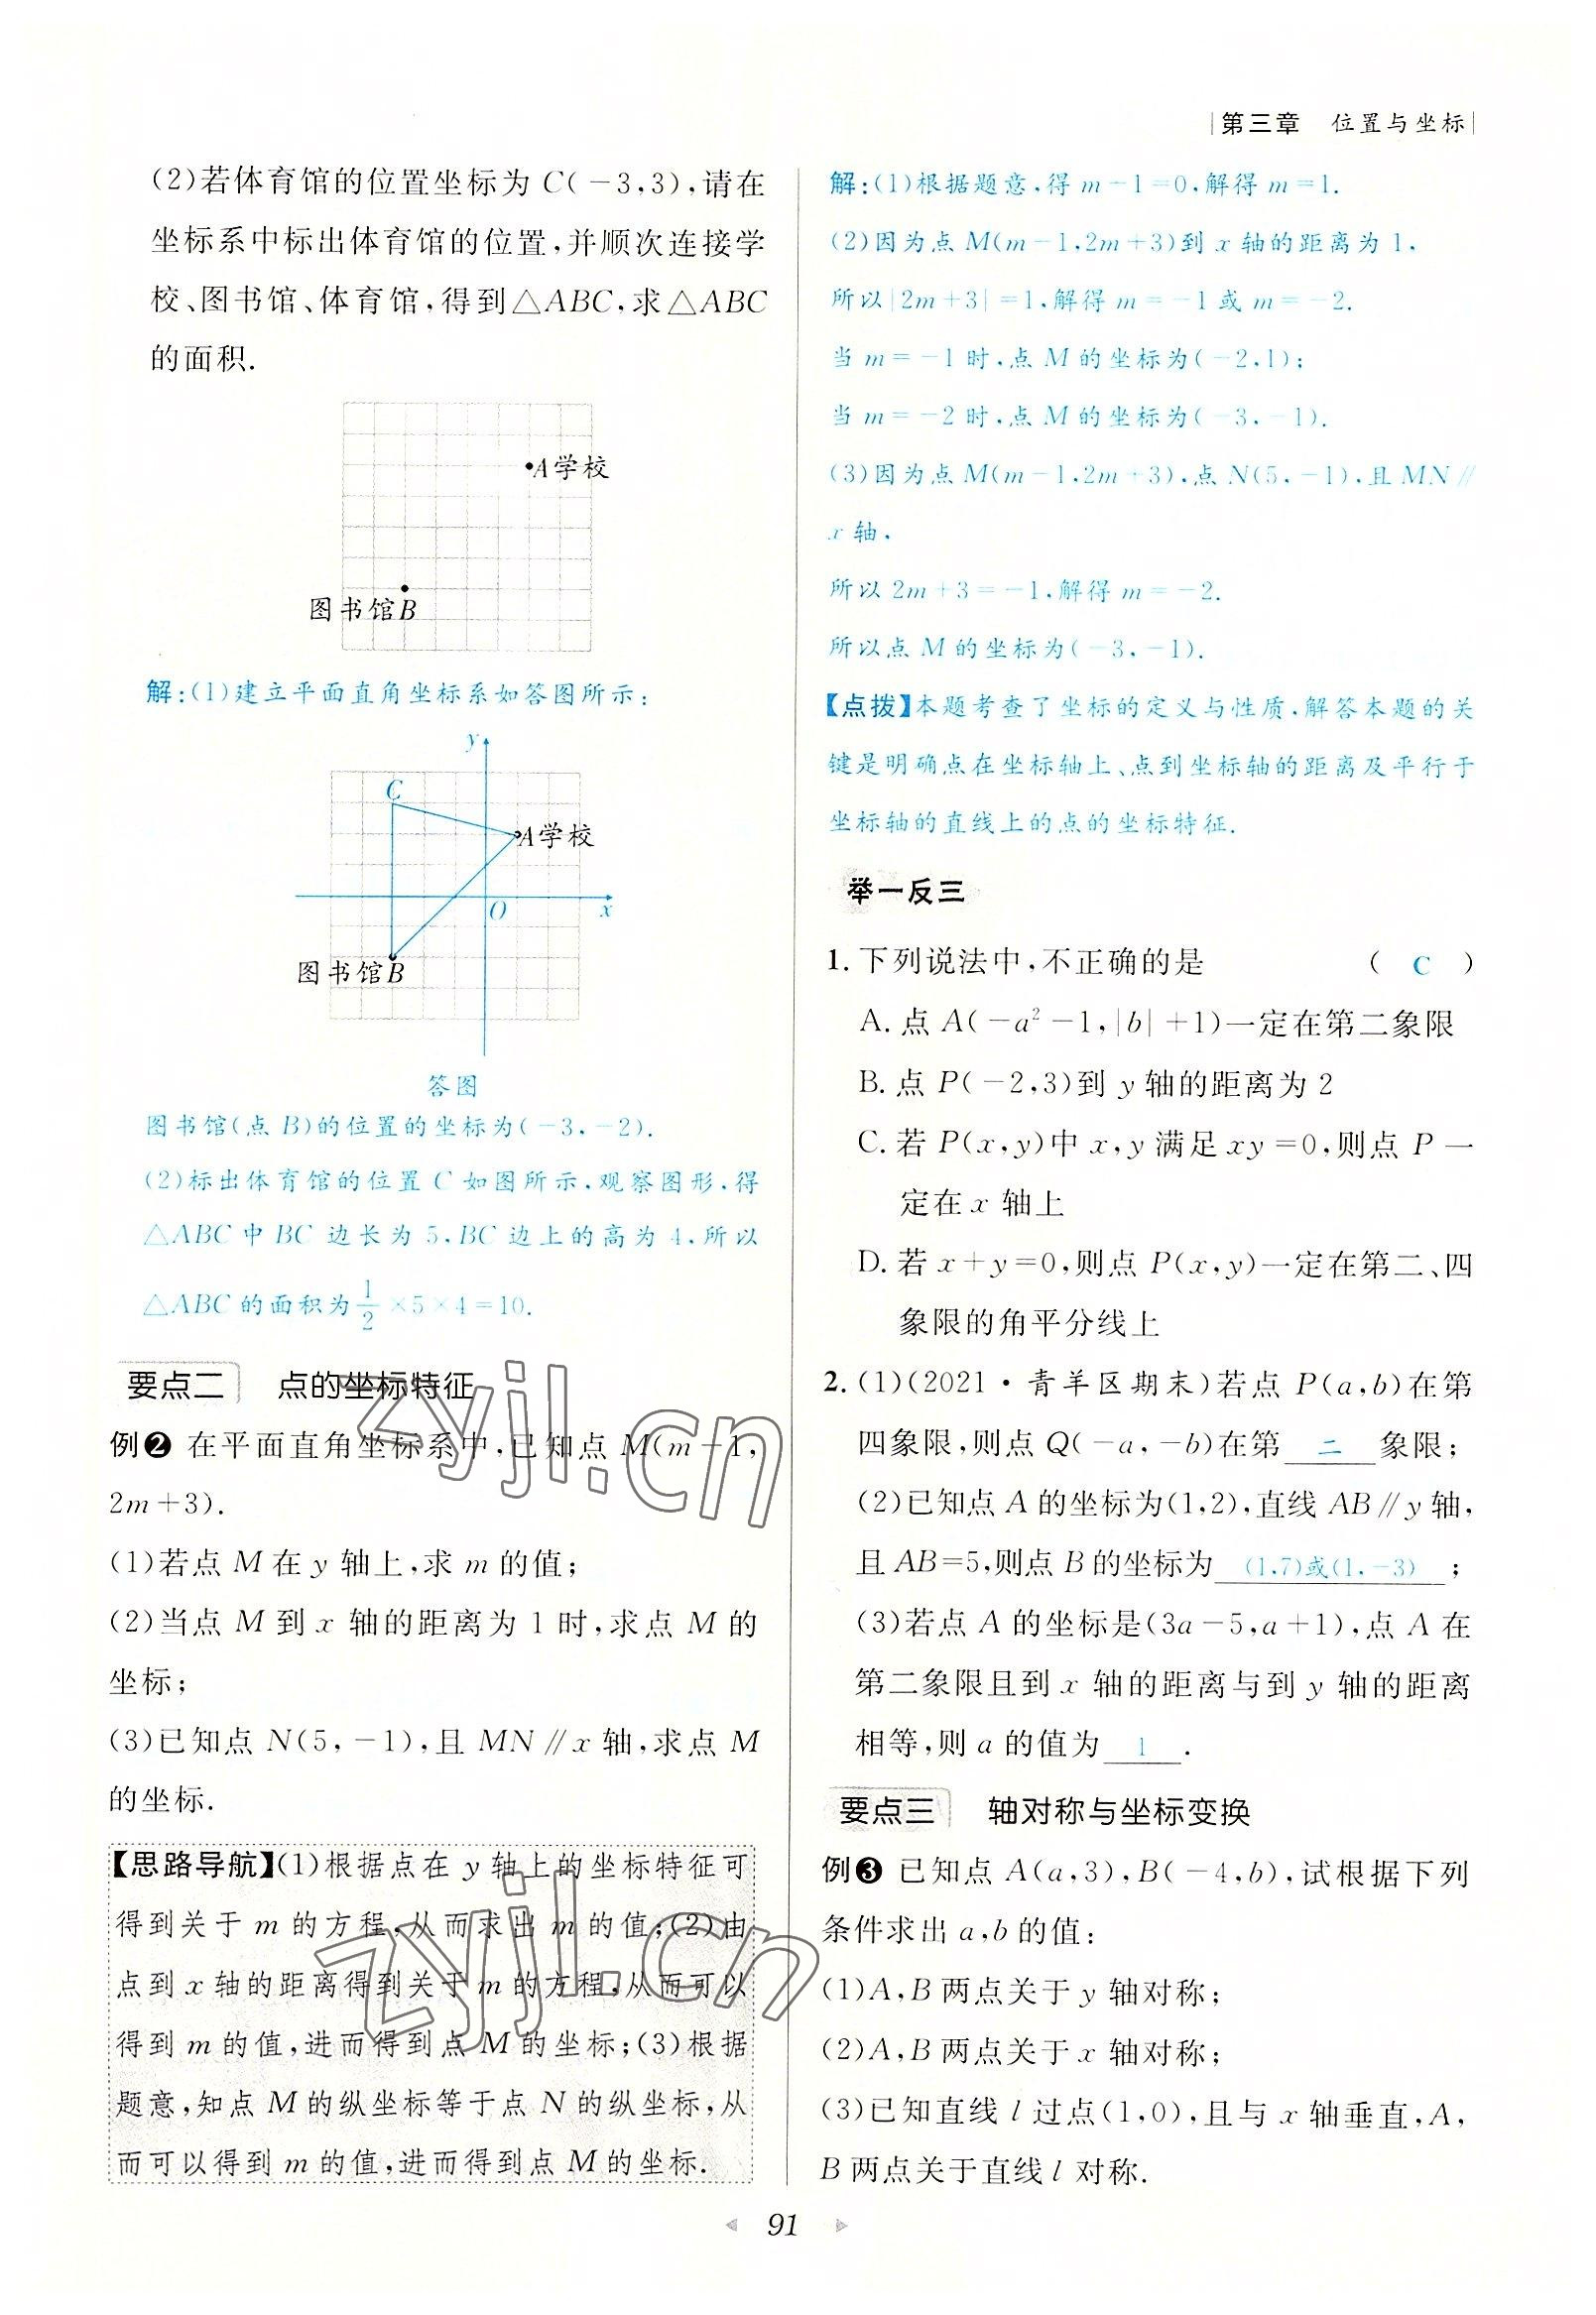 第三章 位置与坐标
(2)若体育馆的位置坐标为 C(-3,3),请在
坐标系中标出体育馆的位置,并顺次连接学
校、图书馆、体育馆,得到△ABC,求△ABC
的面积.
A学校
图书馆B
解:(1)建立平面直角坐标系如答图所示:
y
C
A学校
O
x
图书馆B
答图
图书馆(点 B)的位置的坐标为(-3,-2).
(2)标出体育馆的位置 C 如图所示,观察图形,得
△ABC 中 BC 边长为 5,BC 边上的高为 4,所以
△ABC 的面积为 1/2 ×5×4=10.
要点二 点的坐标特征
例❷ 在平面直角坐标系中,已知点 M(m-1,
2m+3).
(1)若点 M 在 y 轴上,求 m 的值;
(2)当点 M 到 x 轴的距离为 1 时,求点 M 的
坐标;
(3)已知点 N(5,-1),且 MN∥x 轴,求点 M
的坐标.
【思路导航】(1)根据点在 y 轴上的坐标特征可
得到关于 m 的方程,从而求出 m 的值;(2)由
点到 x 轴的距离得到关于 m 的方程,从而可以
得到 m 的值,进而得到点 M 的坐标;(3)根据
题意,知点 M 的纵坐标等于点 N 的纵坐标,从
而可以得到 m 的值,进而得到点 M 的坐标.
解:(1)根据题意,得 m-1=0,解得 m=1.
(2)因为点 M(m-1,2m+3)到 x 轴的距离为 1,
所以|2m+3|=1,解得 m=-1 或 m=-2.
当 m=-1 时,点 M 的坐标为(-2,1);
当 m=-2 时,点 M 的坐标为(-3,-1).
(3)因为点 M(m-1,2m+3),点 N(5,-1),且 MN∥
x 轴,
所以 2m+3=-1,解得 m=-2.
所以点 M 的坐标为(-3,-1).
【点拨】本题考查了坐标的定义与性质,解答本题的关
键是明确点在坐标轴上、点到坐标轴的距离及平行于
坐标轴的直线上的点的坐标特征.
举一反三
1. 下列说法中,不正确的是 ( C )
A. 点 A(-a²-1,|b|+1)一定在第二象限
B. 点 P(-2,3)到 y 轴的距离为 2
C. 若 P(x,y)中 x,y 满足 xy=0,则点 P 一
定在 x 轴上
D. 若 x+y=0,则点 P(x,y)一定在第二、四
象限的角平分线上
2. (1)(2021·青羊区期末)若点 P(a,b)在第
四象限,则点 Q(-a,-b)在第 二 象限;
(2)已知点 A 的坐标为(1,2),直线 AB∥y 轴,
且 AB=5,则点 B 的坐标为 (1,7)或(1,-3) ;
(3)若点 A 的坐标是(3a-5,a+1),点 A 在
第二象限且到 x 轴的距离与到 y 轴的距离
相等,则 a 的值为 1 .
要点三 轴对称与坐标变换
例❸ 已知点 A(a,3),B(-4,b),试根据下列
条件求出 a,b 的值:
(1)A,B 两点关于 y 轴对称;
(2)A,B 两点关于 x 轴对称;
(3)已知直线 l 过点(1,0),且与 x 轴垂直,A,
B 两点关于直线 l 对称.
91
zyjl.cn
zyjl.cn